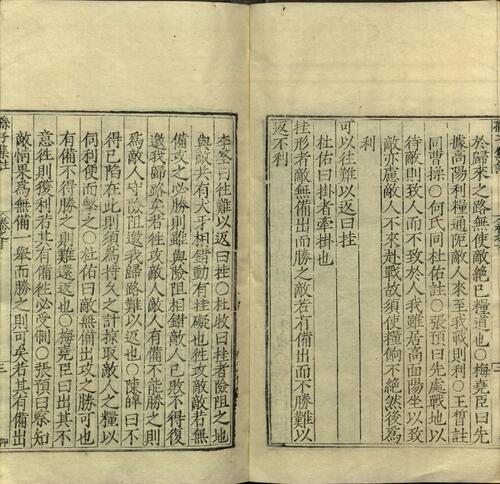 於歸來之路無使敵絶己糧道也〇梅堯臣曰先
據高陽利糧通阨敵人來至我戰則利〇王晳註
同曹操〇何氏同杜佑註〇張預曰先處戰地以
待敵則致人而不致於人我雖居高面陽坐以致
敵亦慮敵人不來赴戰故須使糧餉不絶然後爲
利
可以往難以返曰挂
杜佑曰掛者牽掛也
挂形者敵無備出而勝之敵若有備出而不勝難以
返不利
李筌曰往難以返曰挂〇杜牧曰挂者險阻之地
與敵共有犬牙相錯動有挂礙也徃攻敵敵若無
備攻之必勝則雖與險阻相錯敵人已敗不得復
邀我歸路矣若徃攻敵人敵人有備不能勝之則
爲敵人守險阻邀我歸路難以返也〇陳皥曰不
得已陷在此則須爲持久之計掠取敵人之糧以
伺利便而擊之〇杜佑曰敵無備出攻之勝可也
有備不得勝之則難還返也〇梅堯臣曰出其不
意徃則獲利若其有備徃必受制〇張預曰察知
敵情果爲無備一舉而勝之則可矣若其有備出
孫子集註
卷十
三